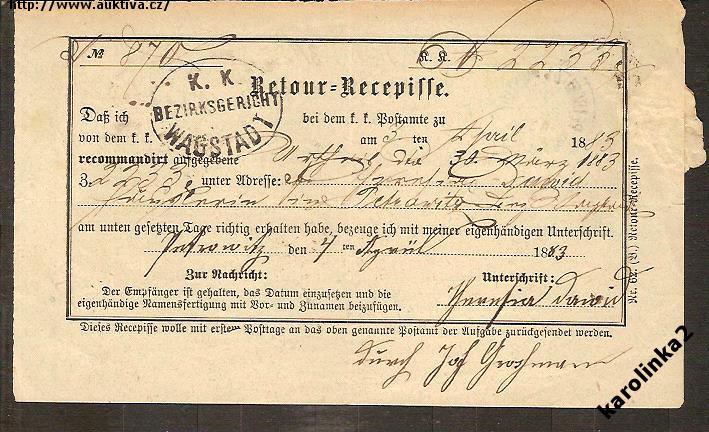 http://www.auktiva.cz/
№ 870
K. K. 2238
K. K.
BEZIRKSGERICHT
WAGSTADT
Retour-Recepisse.
Daß ich bei dem k. k. Postamte zu
von dem k. k. am 3 ten April 1883
recommandirt aufgegebene Urtheil die 30. März 1883
Z. 2233 unter Adresse:
am unten gesetzten Tage richtig erhalten habe, bezeuge ich mit meiner eigenhändigen Unterschrift.
Petrowitz den 4 ten April 1883
Zur Nachricht:
Der Empfänger ist gehalten, das Datum einzusetzen und die
eigenhändige Namensfertigung mit Vor- und Zunamen beizufügen.
Unterschrift:
Theresia David
Dieses Recepisse wolle mit erstem Postage an das oben genannte Postamt der Aufgabe zurückgesendet werden.
durch Joh Groszmann
Nr. 62. (B.) Retour-Recepisse.
karolinka2